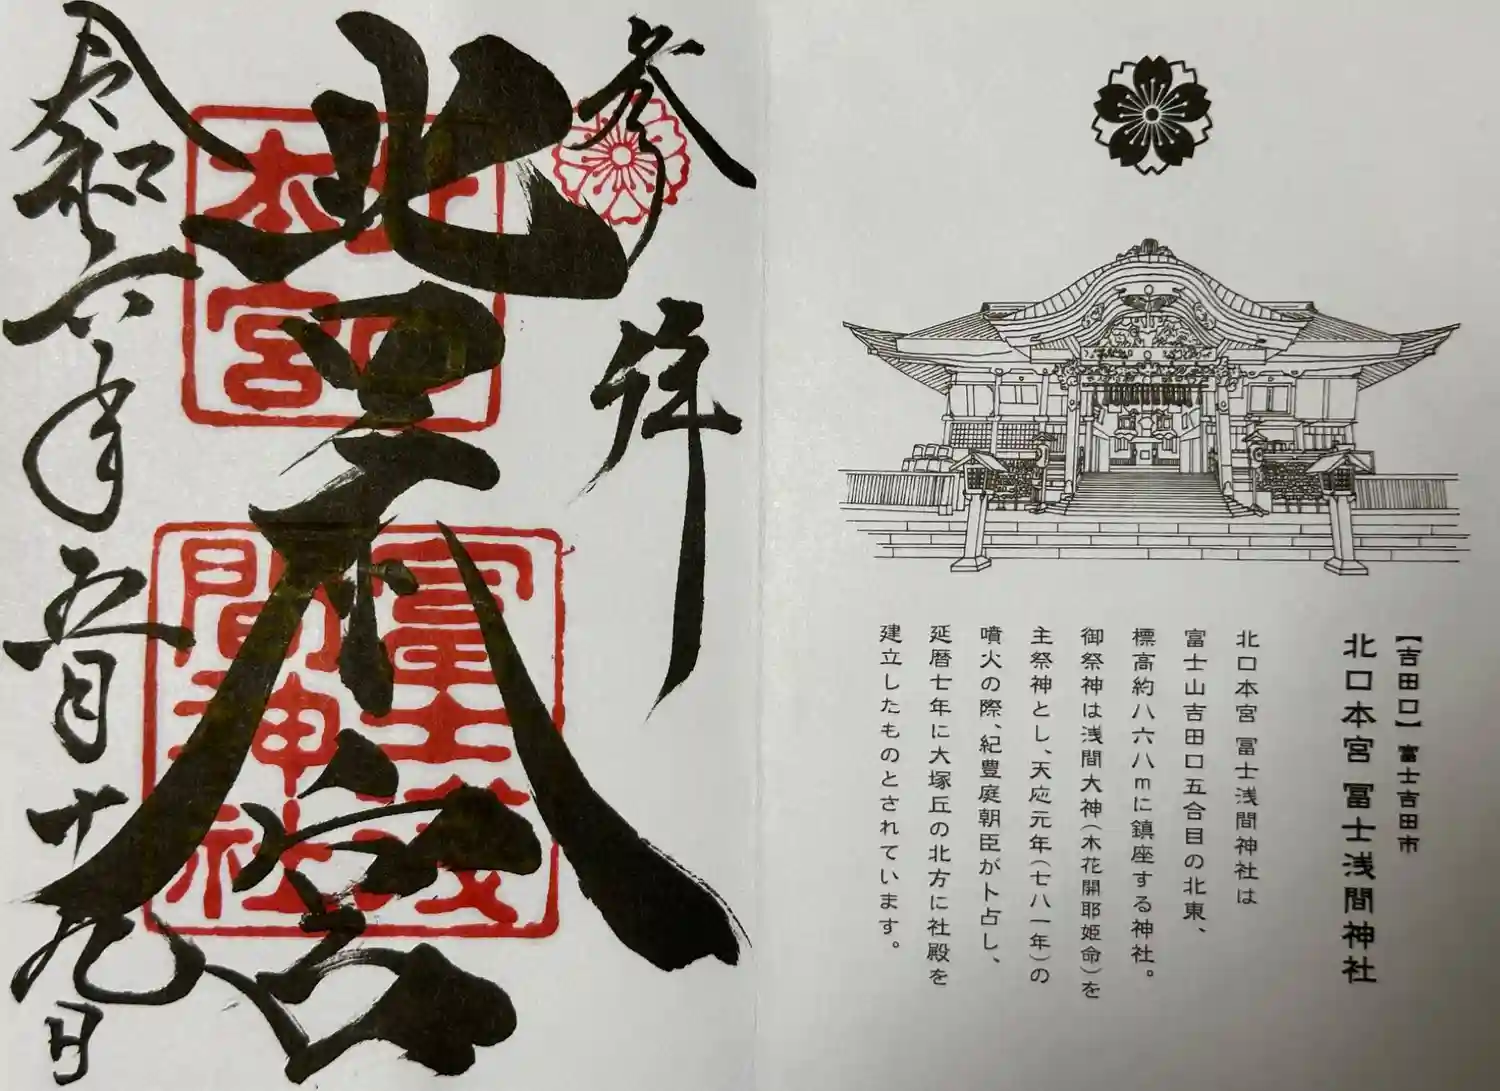 【吉田口】富士吉田市
北口本宮 冨士浅間神社
北口本宮 冨士浅間神社は
富士山吉田口五合目の北東、
標高約八六八mに鎮座する神社。
御祭神は浅間大神(木花開耶姫命)を
主祭神とし、天応元年(七八一年)の
噴火の際、紀豊庭朝臣が卜占し、
延暦七年に大塚丘の北方に社殿を
建立したものとされています。
参拝
北口本宮
北口本宮
冨士浅間神社
令和六年五月十九日